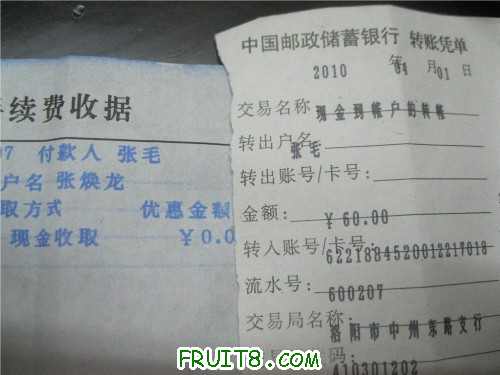 续费收据
07 付款人 张毛
户名 张焕龙
取方式 优惠金额
现金收取 ￥0.0
中国邮政储蓄银行 转账凭单
2010 年 04 月 01 日
交易名称 现金到帐户的转帐
转出户名 张毛
转出账号/卡号:
金额: ￥60.00
转入账号/卡号: 6221884520012217018
流水号: 600207
交易局名称: 洛阳市中州东路支行
码: 410301202
FRUIT8.COM